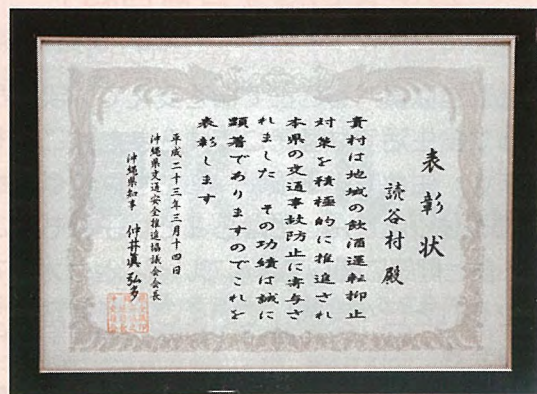 表彰状
読谷村殿
貴村は地域の飲酒運転抑止
対策を積極的に推進され
本県の交通事故防止に寄与さ
れました その功績は誠に
顕著でありますのでこれを
表彰します
平成二十三年三月十四日
沖縄県交通安全推進協議会会長
沖縄県知事 仲井眞弘多